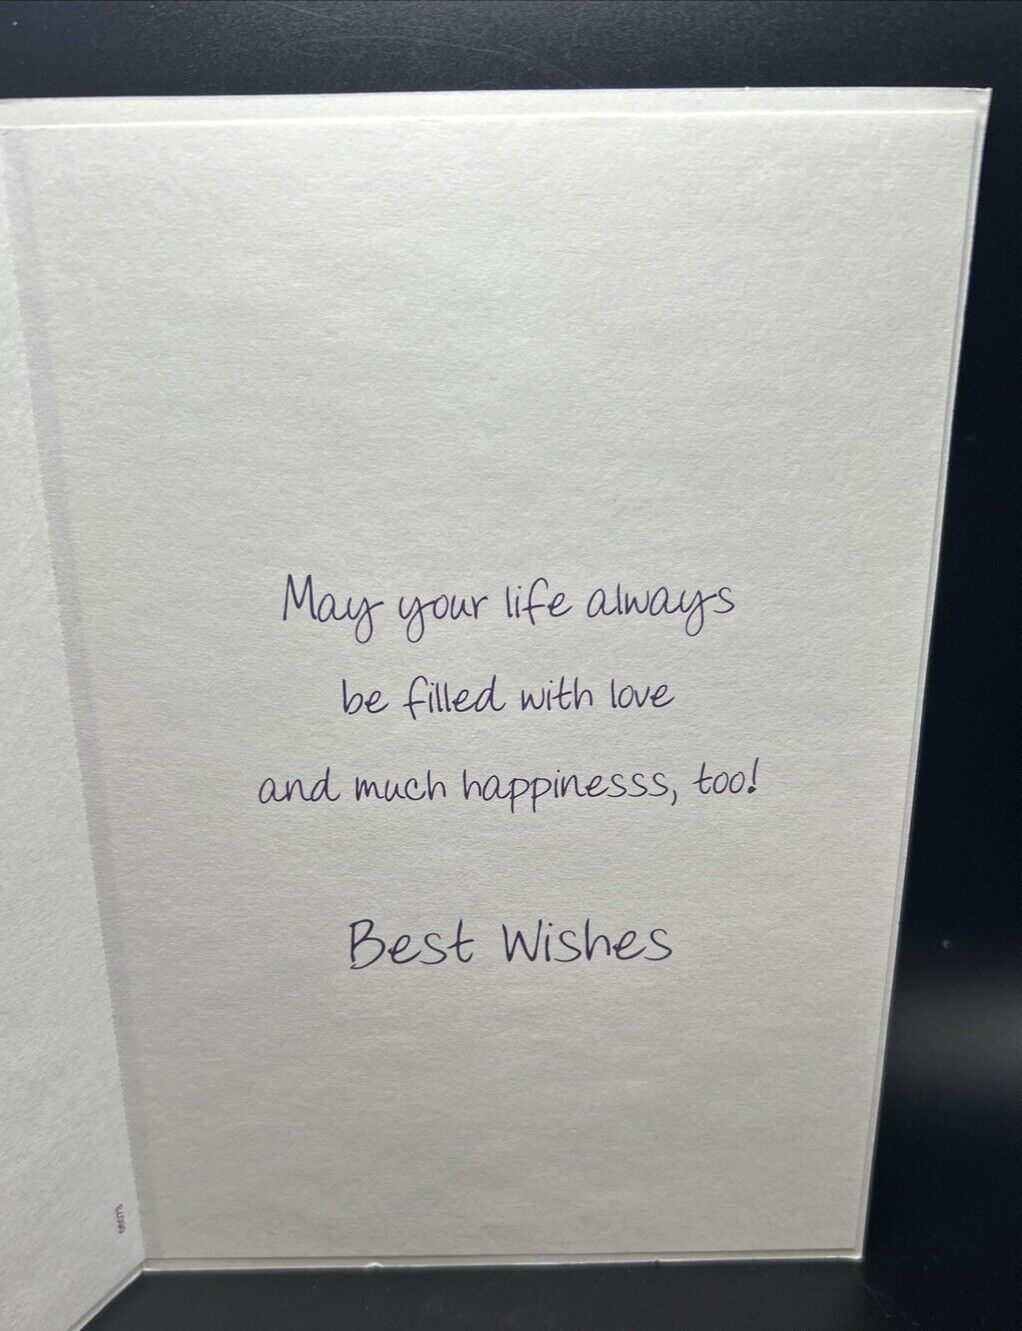 May your life always
be filled with love
and much happinesss, too!
Best Wishes